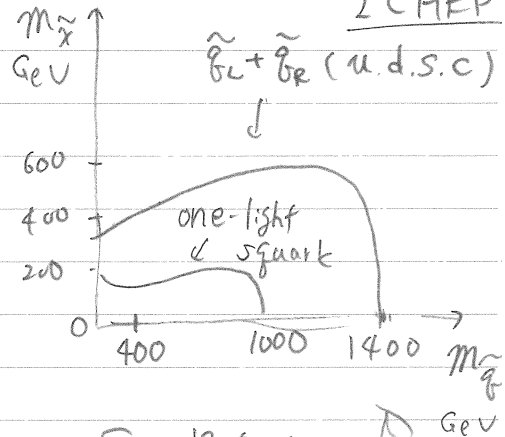 m_χ̃
GeV
q̃_L + q̃_R (u.d.s.c)
600
400
200
0
one-light
squark
400
1000
1400
m_q̃
GeV